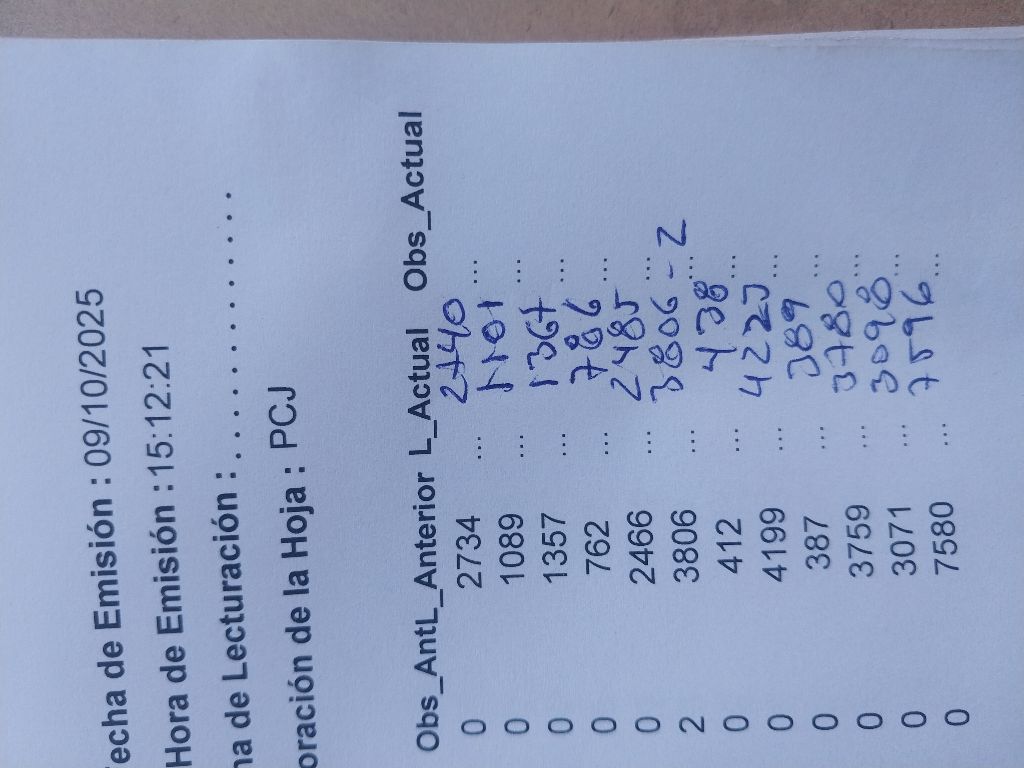 echa de Emisión : 09/10/2025
Hora de Emisión :15:12:21
na de Lecturación :...............
oración de la Hoja : PCJ
Obs_AntL_Anterior L_Actual Obs_Actual
0 2734 ... 2740 ...
0 1089 ... 1101 ...
0 1357 ... 1367 ...
0 762 ... 786 ...
0 2466 ... 2485 ...
2 3806 ... 3806 - 2 ...
0 412 ... 438 ...
0 4199 ... 4223 ...
0 387 ... 389 ...
0 3759 ... 3780 ...
0 3071 ... 3098 ...
0 7580 ... 7596 ...